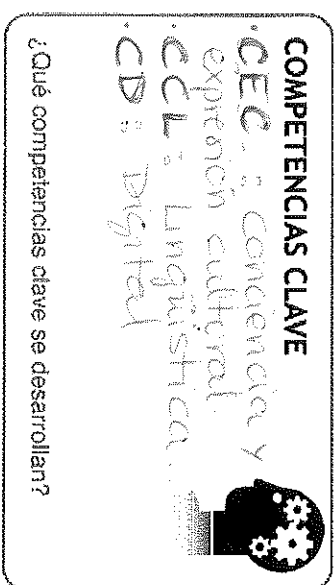 COMPETENCIAS CLAVE
· CEC : Conciencia y
expresión cultural.
· CCL : Lingüística.
· CD : Digital
¿Qué competencias clave se desarrollan?